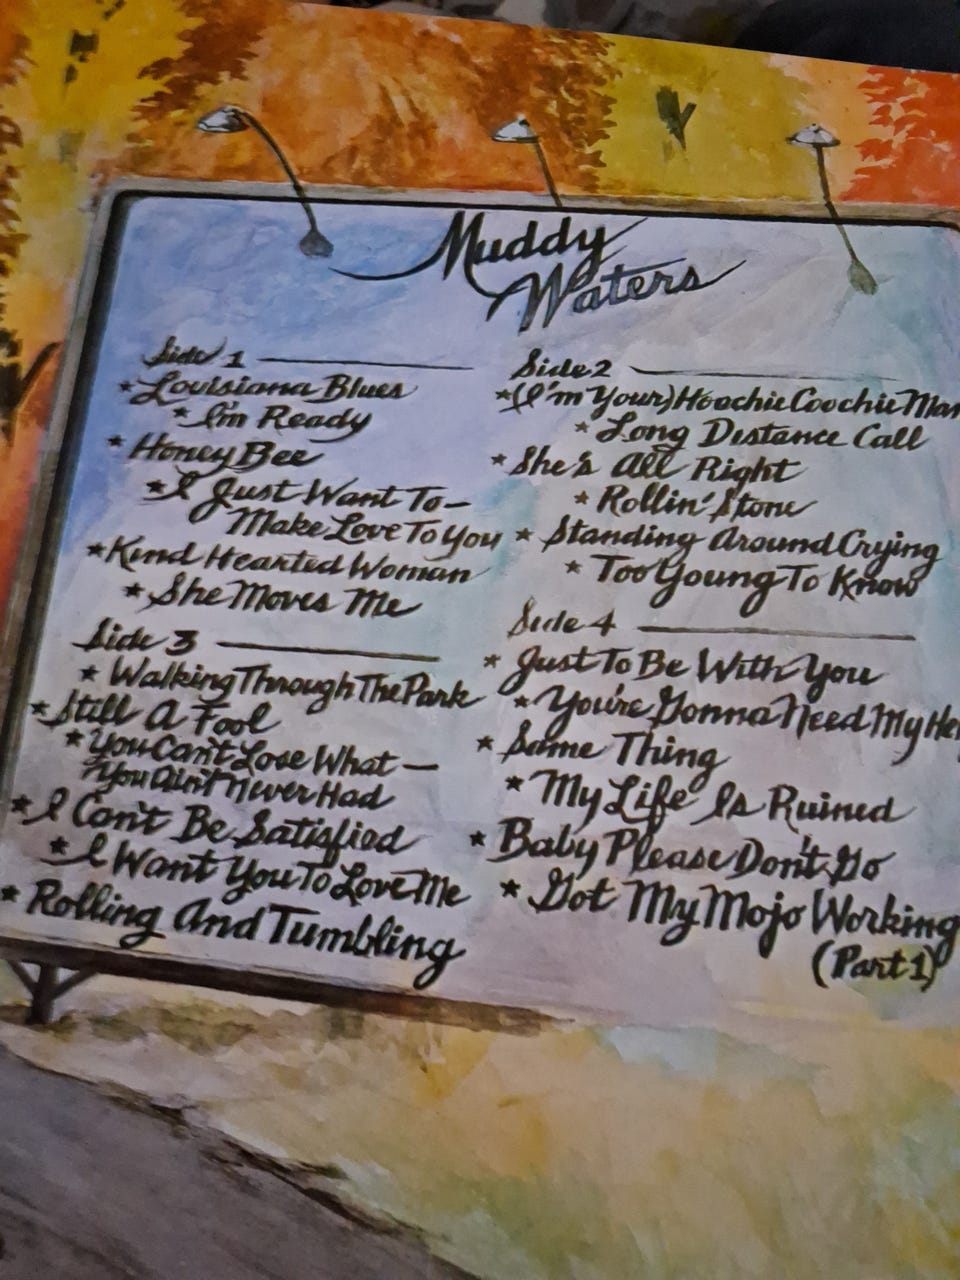 Muddy
Waters
Side 1
* Louisiana Blues
* I'm Ready
* Honey Bee
* I Just Want To-
Make Love To You
* Kind Hearted Woman
* She Moves Me
Side 2
* (I'm Your) Hoochie Coochie Man
* Long Distance Call
* She's All Right
* Rollin' Stone
* Standing Around Crying
* Too Young To Know
Side 3
* Walking Through The Park
* Still A Fool
* You Can't Lose What-
You Ain't Never Had
* I Can't Be Satisfied
* I Want You To Love Me
* Rolling And Tumbling
Side 4
* Just To Be With You
* You're Gonna Need My
* Same Thing
* My Life Is Ruined
* Baby Please Don't Go
* Got My Mojo Working
(Part 1)